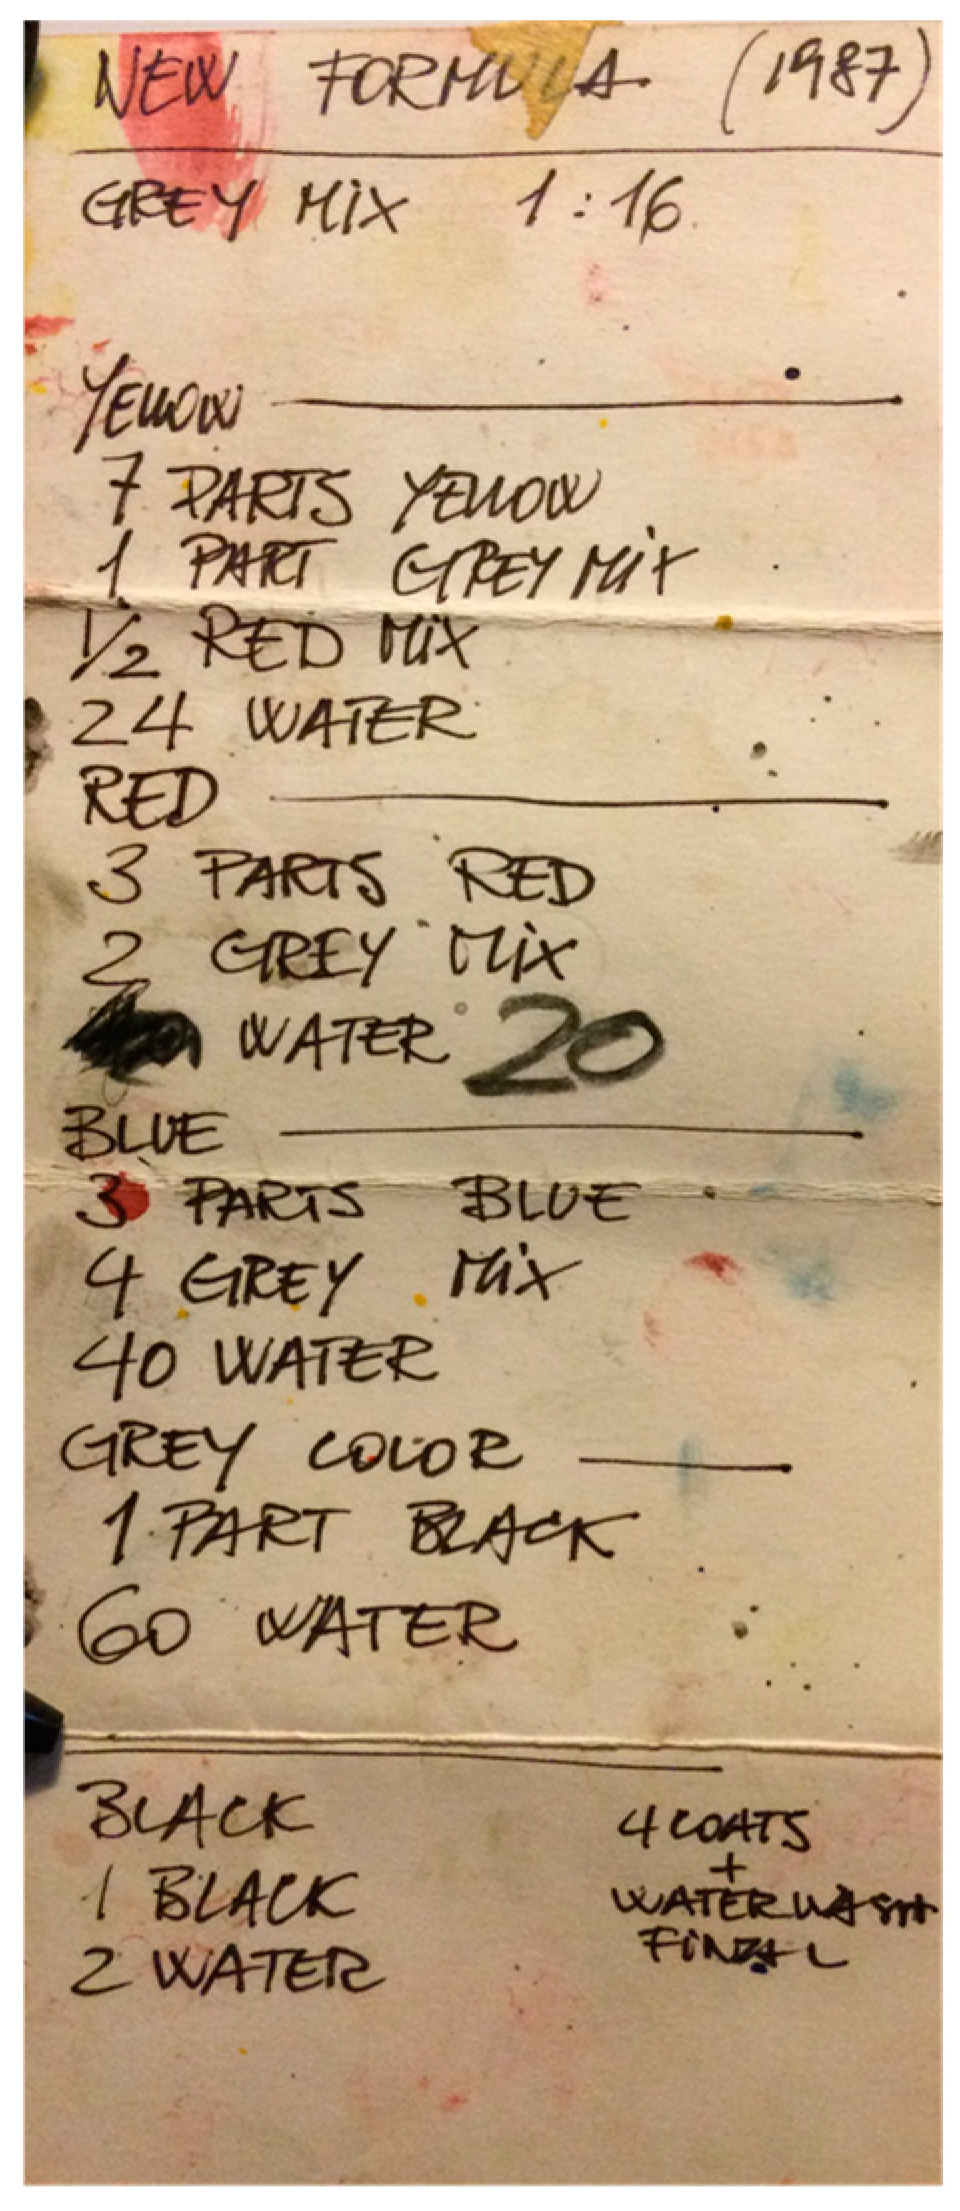 NEW FORMULA (1987)
GREY MiX 1:16
YELLOW
7 PARTS YELLOW
1 PART GREY MiX
1/2 RED MiX
24 WATER
RED
3 PARTS RED
2 GREY MiX
WATER 20
BLUE
3 PARTS BLUE
4 GREY MiX
40 WATER
GREY COLOR
1 PART BLACK
60 WATER
BLACK
1 BLACK
2 WATER
4 COATS
+
WATER WASH
FiNAL